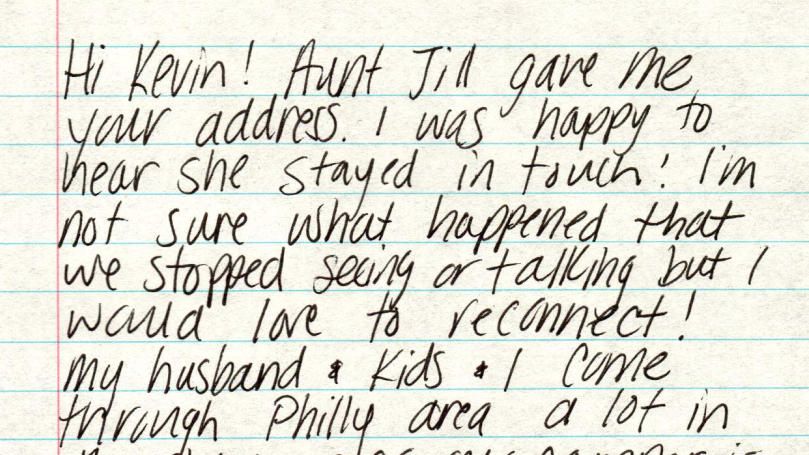 Hi Kevin! Aunt Jill gave me
your address. I was happy to
hear she stayed in touch! I'm
not sure what happened that
we stopped seeing or talking but I
would love to reconnect!
my husband & kids & I come
through Philly area a lot in